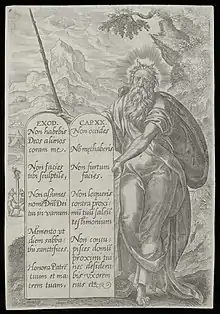 EXOD.
Non habebis
Deos alienos
coram me.
Non facies
tibi sculptile.
Non assumes
nomē Dñi Dei
tui in vanum
Memento ut
diem sabba
ti sanctifices.
Honora Patrē
tuum et ma
trem tuam.
CAP. XX.
Non occides
Nō mœchaberis
Non furtum
facies.
Non loqueris
contra proxi
mū tuū falsū
testimonium
Non concu
pisces domū
proximi tui
nec desider
bis vxorem